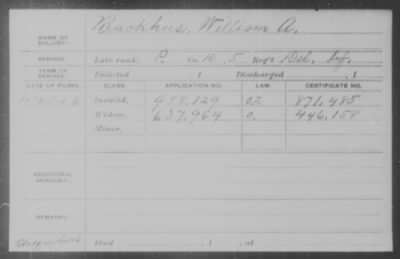 NAME OF SOLDIER: Buckhns, William A.
SERVICE: Late rank, P. Co. D, 5 Reg't Del. Inf.
TERM OF SERVICE: Enlisted , 1 Discharged , 1
DATE OF FILING. CLASS. APPLICATION NO. LAW. CERTIFICATE NO.
Invalid, 958,129 871,485
Widow, 637,964 O. 446,158
Minor,
ADDITIONAL SERVICES:
REMARKS:
Died , 1 , at